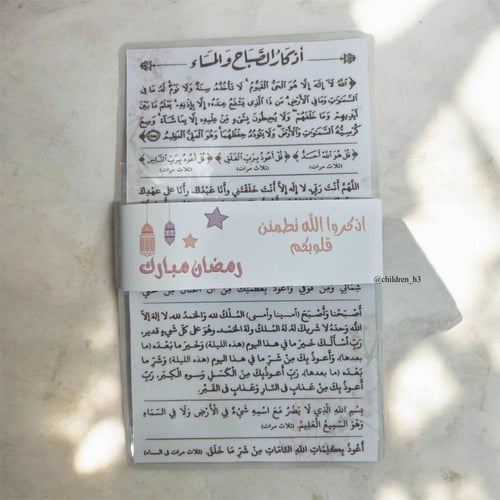 أذكار الصباح والمساء
﴿ اللَّهُ لَا إِلَهَ إِلَّا هُوَ الْحَيُّ الْقَيُّومُ لَا تَأْخُذُهُ سِنَةٌ وَلَا نَوْمٌ لَهُ مَا فِي
السَّمَاوَاتِ وَمَا فِي الْأَرْضِ مَن ذَا الَّذِي يَشْفَعُ عِندَهُ إِلَّا بِإِذْنِهِ يَعْلَمُ مَا بَيْنَ
أَيْدِيهِمْ وَمَا خَلْفَهُمْ وَلَا يُحِيطُونَ بِشَيْءٍ مِّنْ عِلْمِهِ إِلَّا بِمَا شَاءَ وَسِعَ
كُرْسِيُّهُ السَّمَاوَاتِ وَالْأَرْضَ وَلَا يَئُودُهُ حِفْظُهُمَا وَهُوَ الْعَلِيُّ الْعَظِيمُ ﴾
﴿ قُلْ هُوَ اللَّهُ أَحَدٌ ﴾ ﴿ قُلْ أَعُوذُ بِرَبِّ الْفَلَقِ ﴾ ﴿ قُلْ أَعُوذُ بِرَبِّ النَّاسِ ﴾
(ثلاث مرات) (ثلاث مرات) (ثلاث مرات)
اللَّهُمَّ أَنْتَ رَبِّي لا إِلَهَ إِلاَّ أَنْتَ خَلَقْتَنِي وَأَنَا عَبْدُكَ، وَأَنَا عَلَى عَهْدِكَ
اذكروا الله تطمئن
قلوبكم
رمضان مبارك
@children_h3
شِمَالِي وَمِنْ فَوْقِي وَأَعُوذُ بِعَظَمَتِكَ
أَصْبَحْنَا وَأَصْبَحَ (أمسينا وأمسى) الْمُلْكُ لله وَالْحَمْدُ لله، لا إِلَهَ إِلاَّ
اللَّهُ وَحْدَهُ لا شَرِيكَ لَهُ لَهُ الْمُلْكُ وَلَهُ الْحَمْدُ وَهُوَ عَلَى كُلِّ شَيْءٍ قَدِير،
رَبِّ أَسْأَلُكَ خَيْرَ مَا فِي هَذَا الْيَوْمِ (هذه الليلة) وَخَيْرَ مَا بَعْدَهُ (ما
بعدها)، وَأَعُوذُ بِكَ مِنْ شَرِّ مَا فِي هَذَا الْيَوْمِ (هذه الليلة) وَشَرِّ مَا
بَعْدَهُ (ما بعدها)، رَبِّ أَعُوذُ بِكَ مِنَ الْكَسَلِ وَسُوءِ الْكِبَرِ، رَبِّ
أَعُوذُ بِكَ مِنْ عَذَابٍ فِي النَّارِ وَعَذَابٍ فِي الْقَبْرِ.
بِسْمِ اللهِ الَّذِي لَا يَضُرُّ مَعَ اسْمِهِ شَيْءٌ فِي الْأَرْضِ وَلَا فِي السَّمَاءِ
وَهُوَ السَّمِيعُ الْعَلِيمُ. (ثلاث مرات)
أَعُوذُ بِكَلِمَاتِ اللهِ التَّامَّاتِ مِنْ شَرِّ مَا خَلَقَ. (ثلاث مرات في المساء)